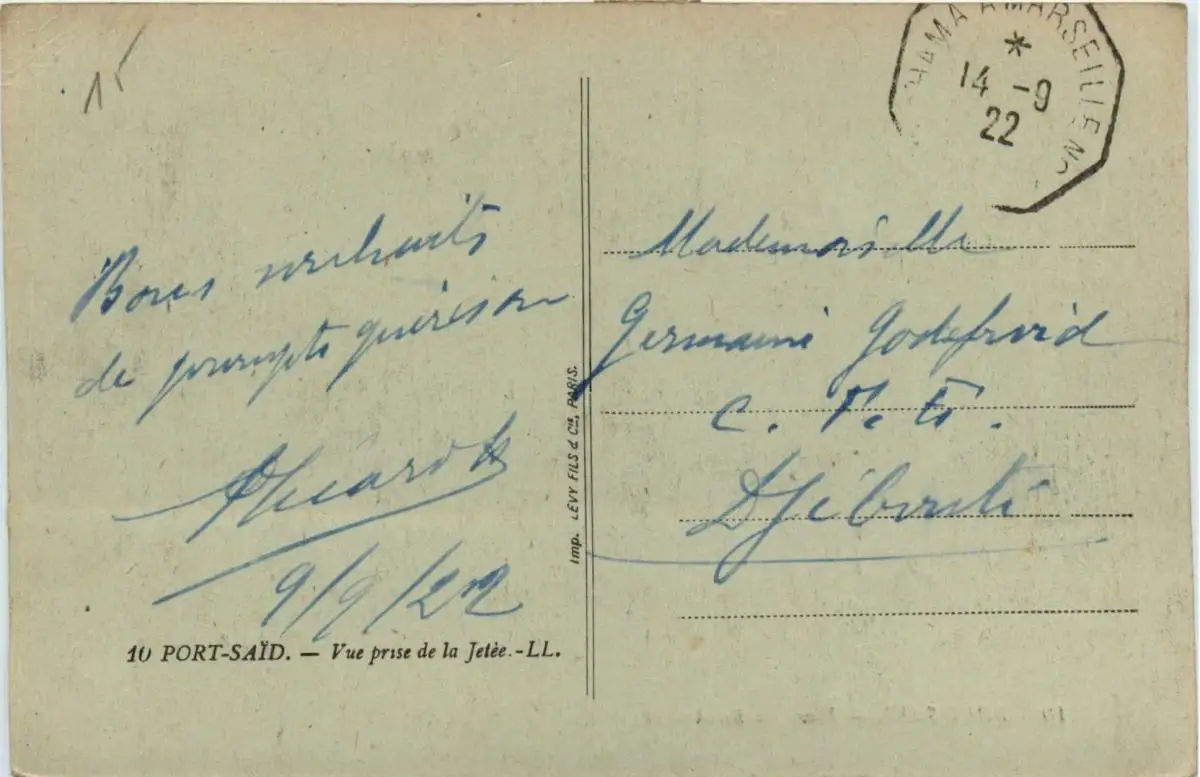 15
HAMA A MARSEILLE N
*
14 -9
22
Bons souhaits
de prompte guérison
9/9/22
Mademoiselle
Germaine Godefroid
Djibouti
Imp. LEVY FILS & Cie, PARIS.
10 PORT-SAÏD. — Vue prise de la Jetée.-LL.